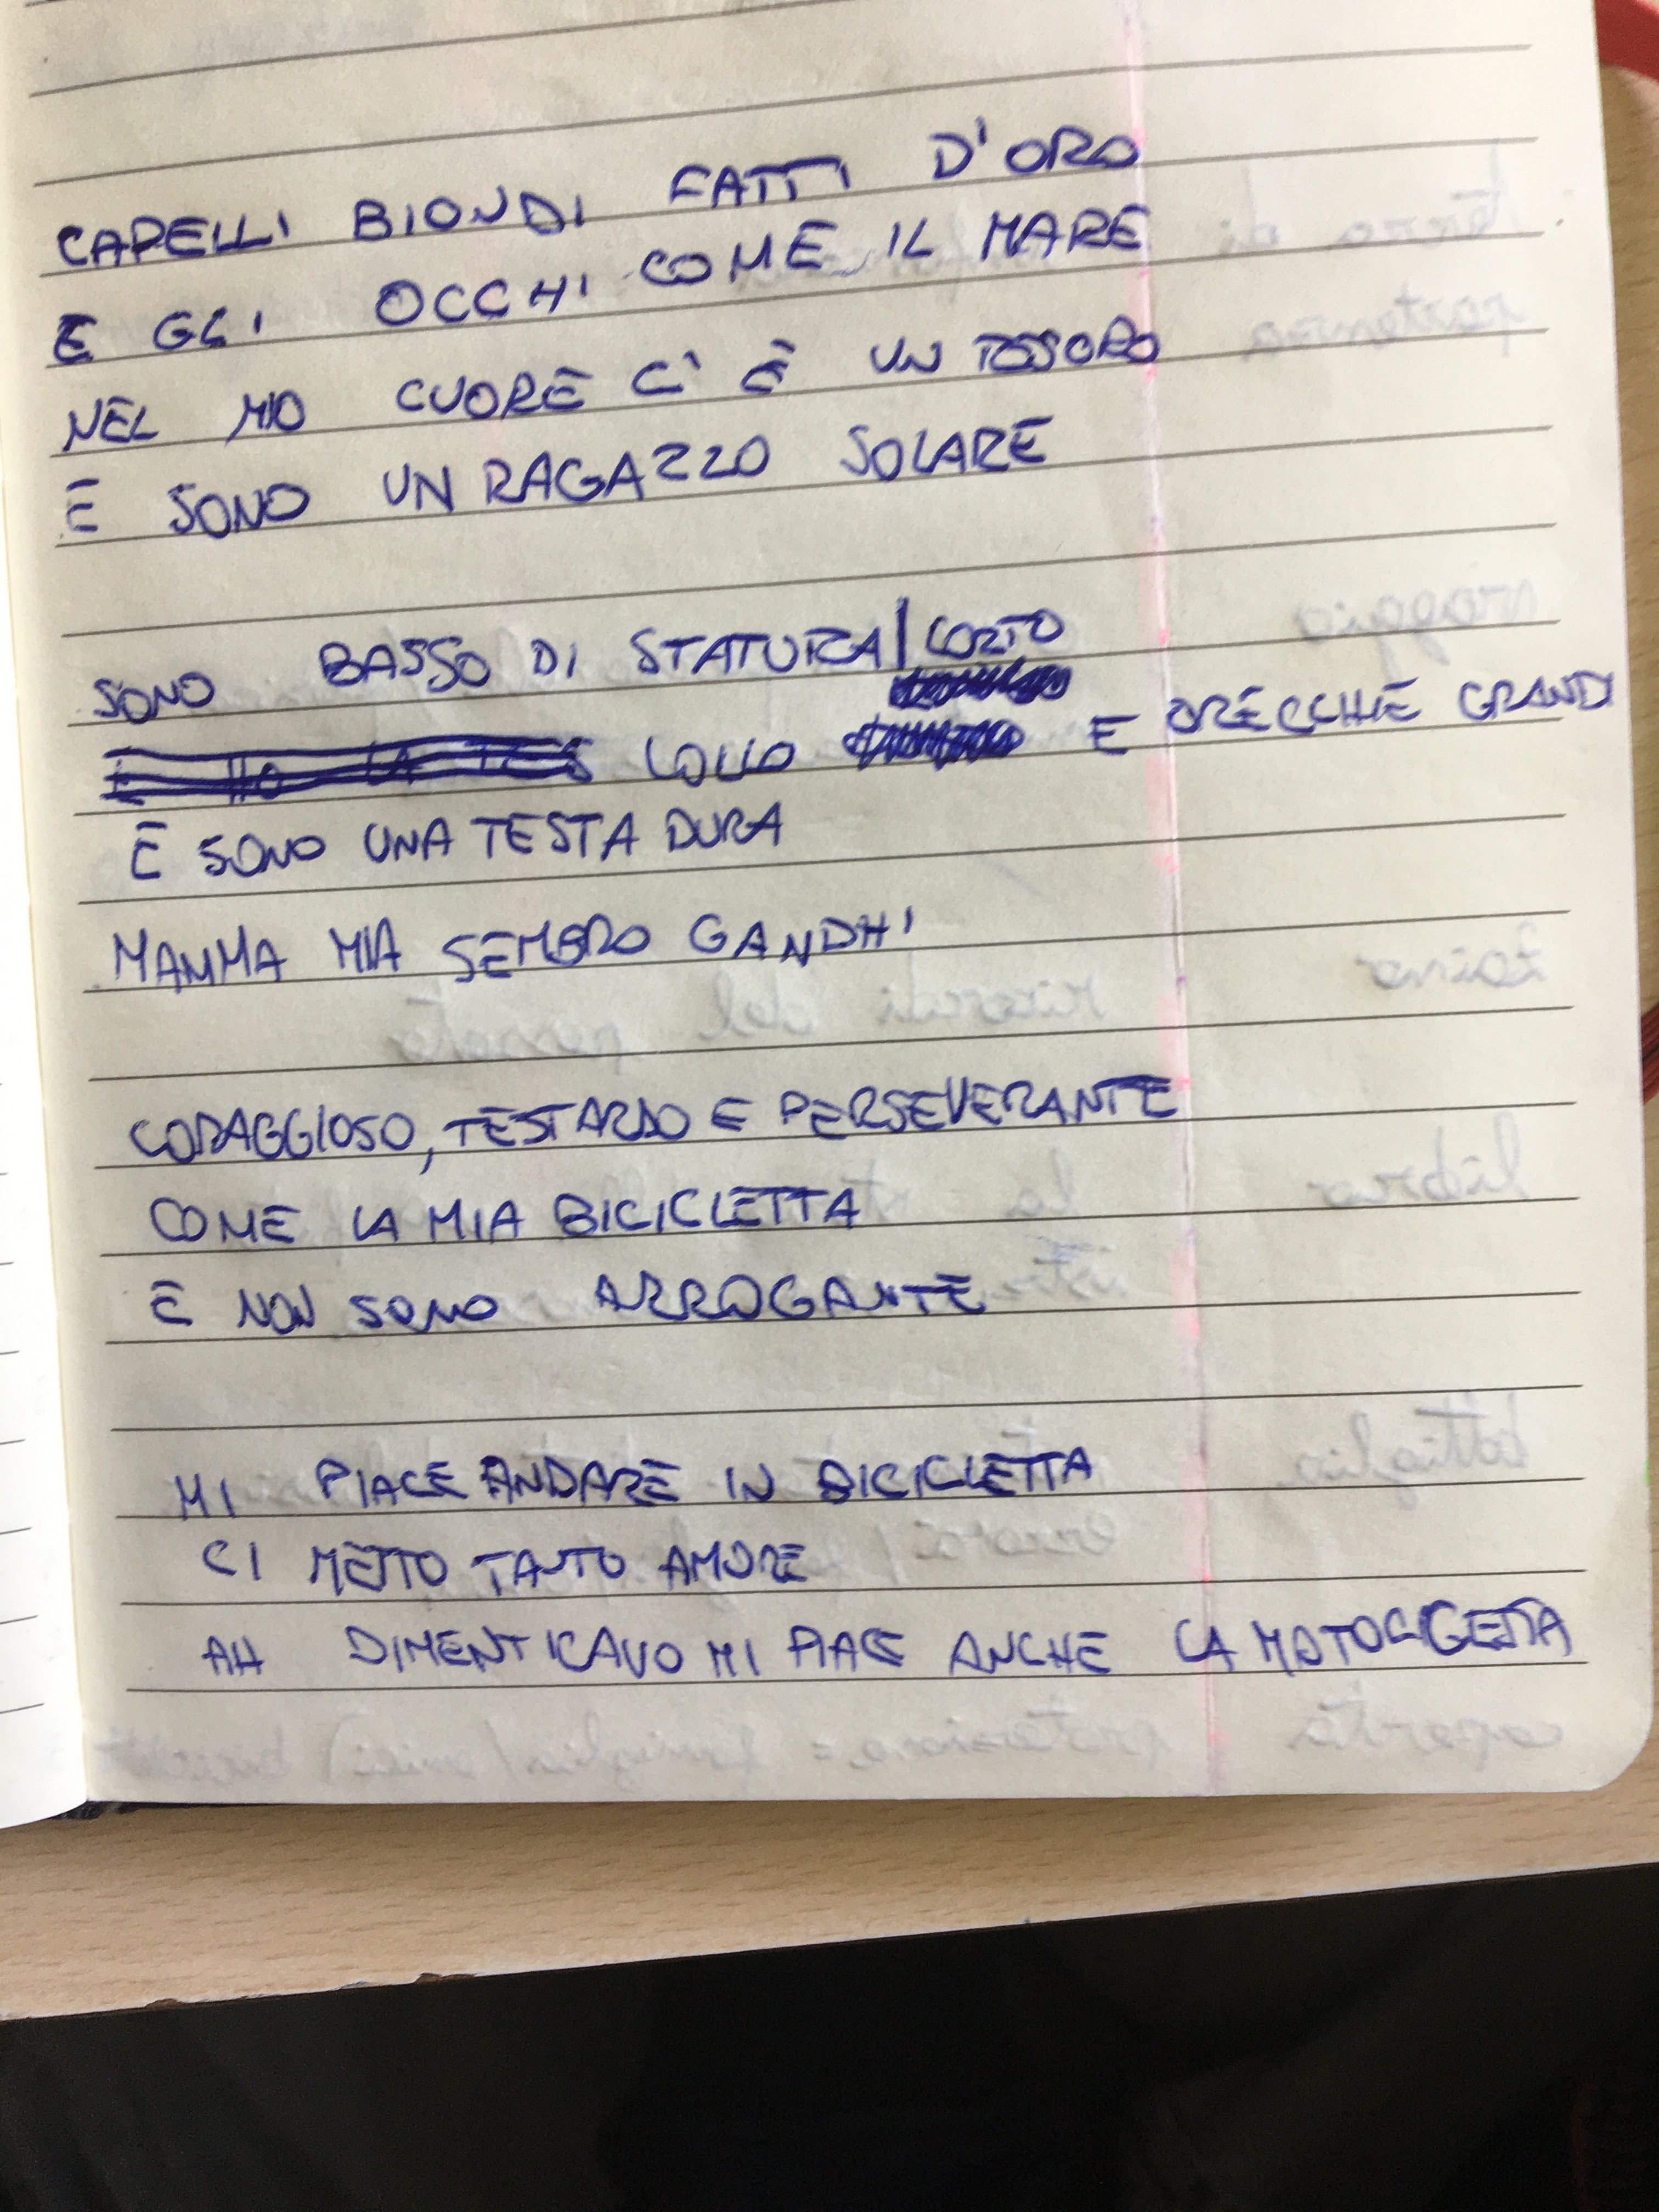 CAPELLI BIONDI FATTI D'ORO
E GLI OCCHI COME IL MARE
NEL MIO CUORE C'È UN TESSORO
E SONO UN RAGAZZO SOLARE
SONO BASSO DI STATURA / CORTO
COLLO E ORECCHIE GRANDI
E SONO UNA TESTA DURA
MAMMA MIA SEMBRO GANDHI
CORAGGIOSO, TESTARDO E PERSEVERANTE
COME LA MIA BICICLETTA
E NON SONO ARROGANTE
MI PIACE ANDARE IN BICICLETTA
CI METTO TANTO AMORE
AH DIMENTICAVO MI PIACE ANCHE LA